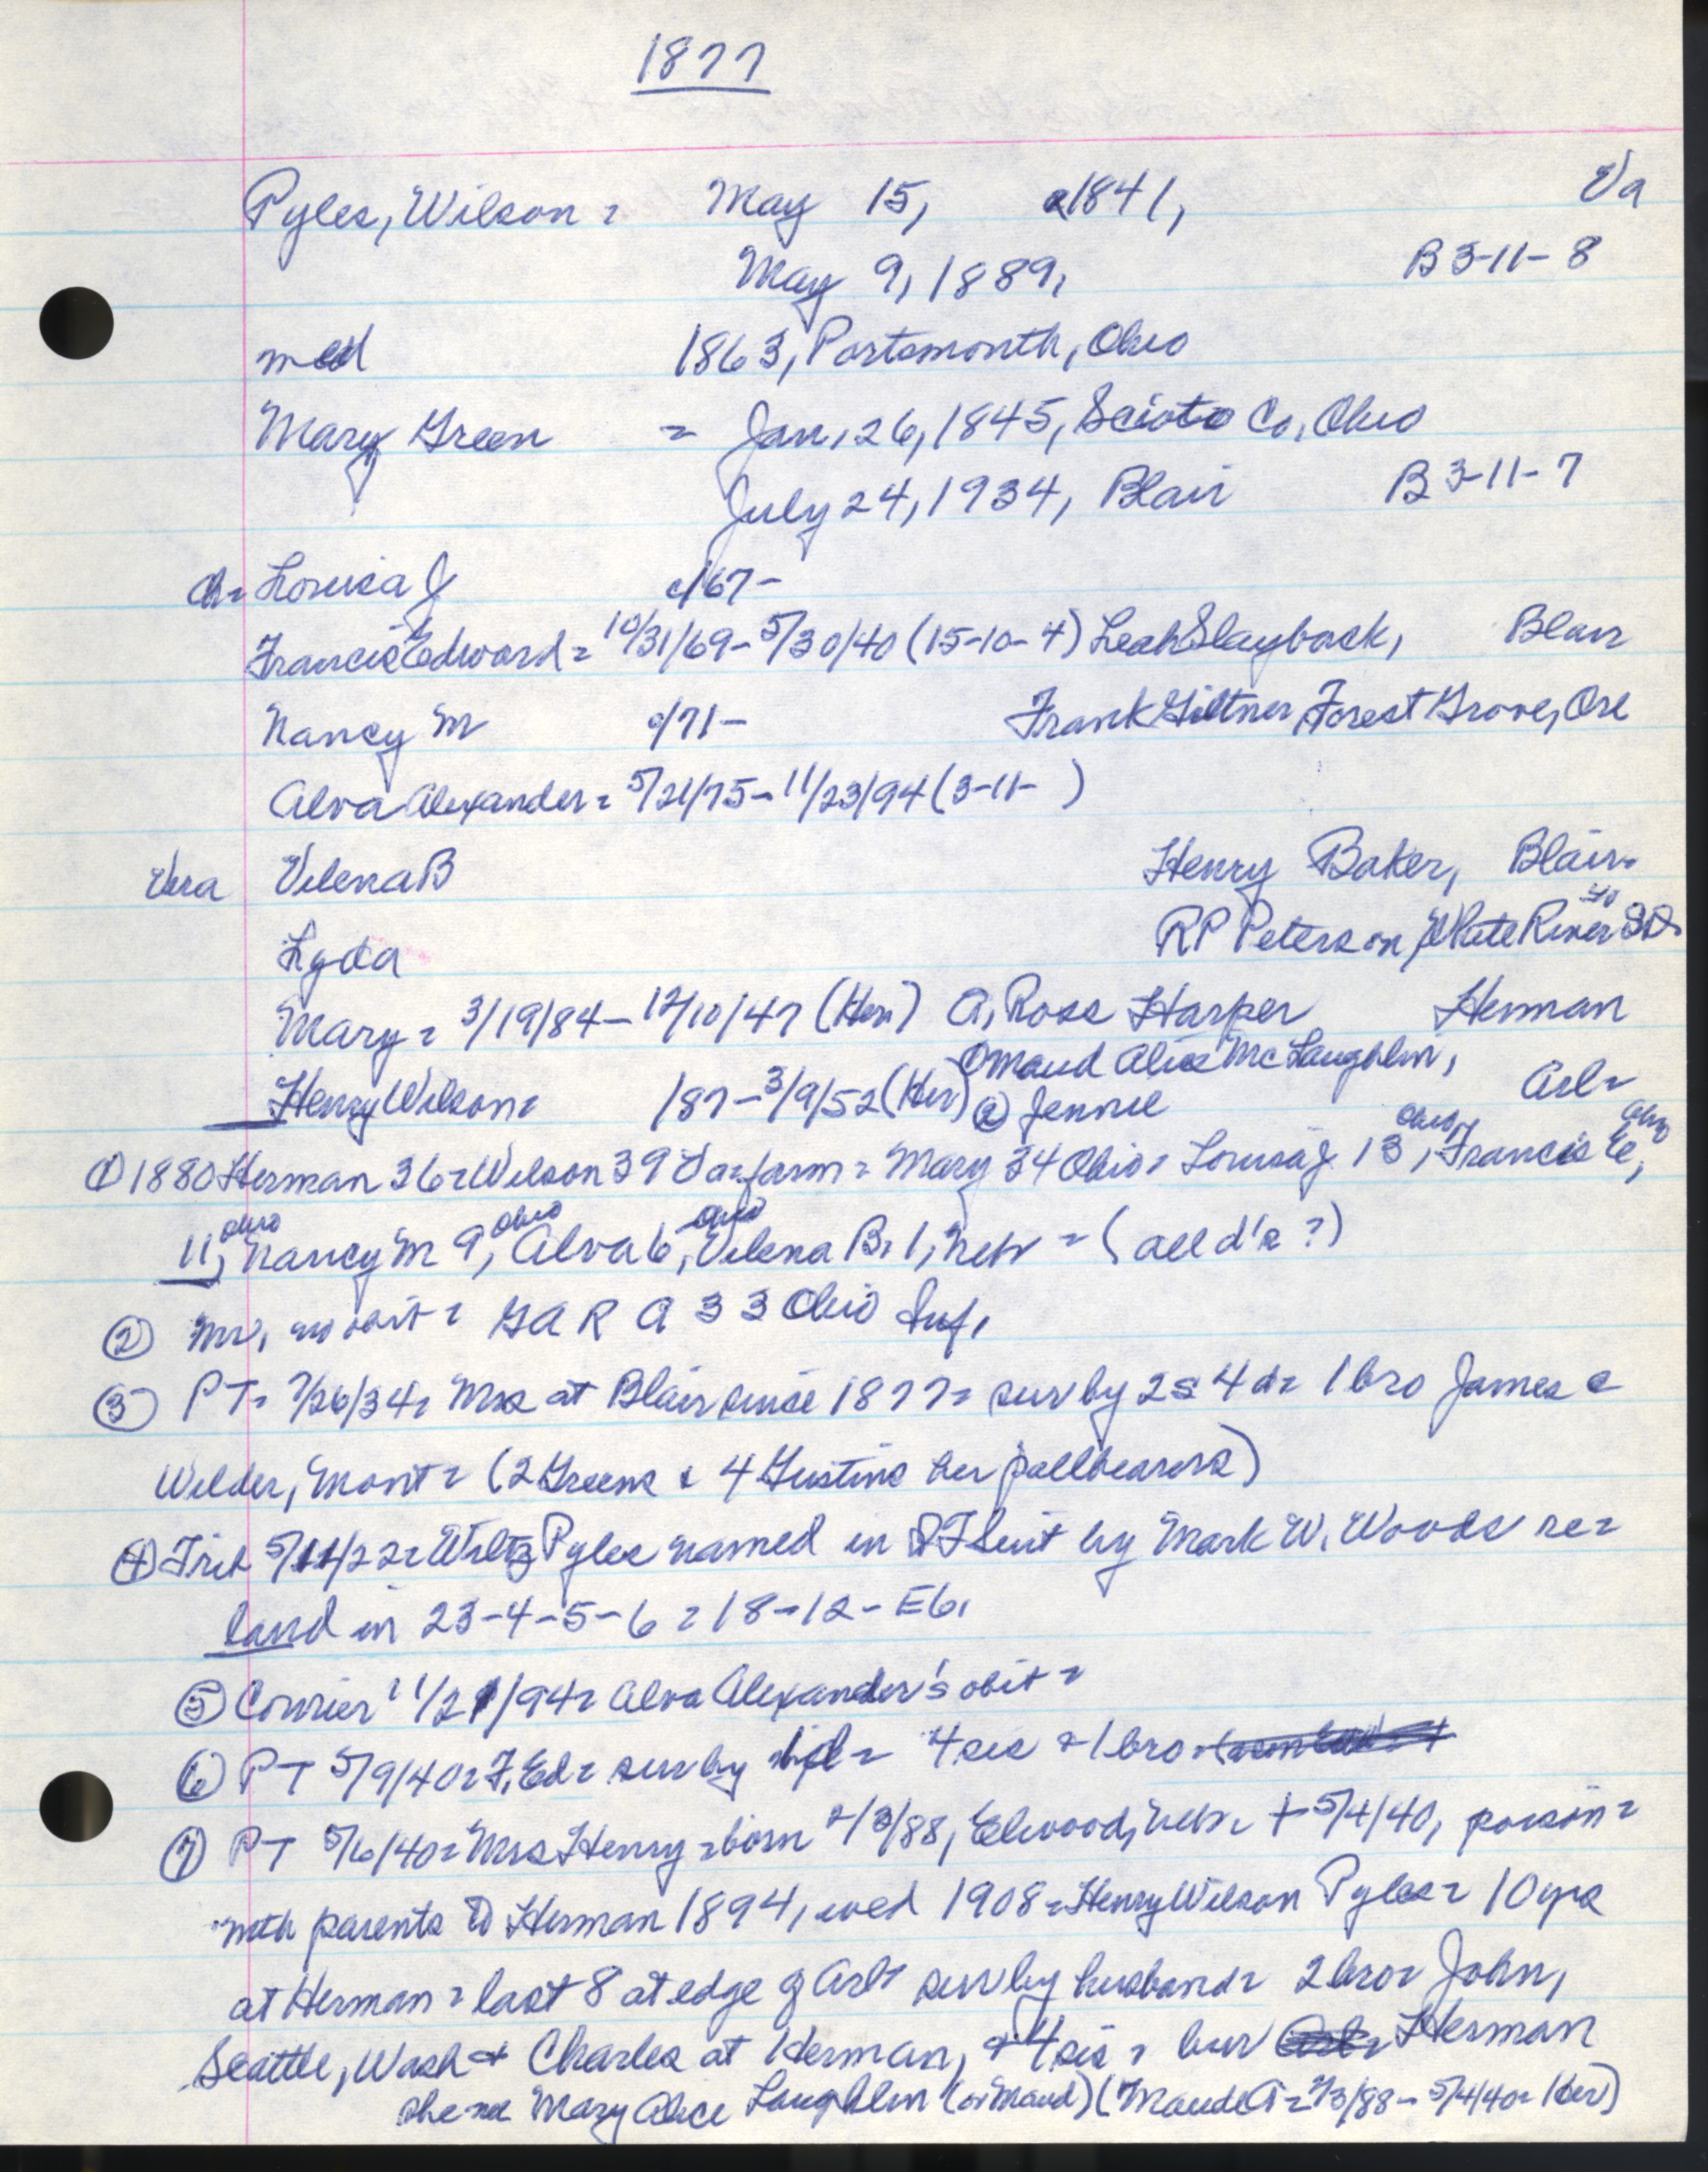 1877
Pyles, Wilson = May 15, 1841, Va
May 9, 1889, B 3-11-8
med 1863, Portsmonth, Ohio
Mary Green = Jan, 26, 1845, Scioto Co, Ohio
July 24, 1934, Blair B 3-11-7
ch= Louisa J c/67-
Francis Edward = 10/31/69 - 5/30/40 (15-10-4) Leah Slayback, Blair
Nancy M c/71- Frank Giltner, Forest Grove, Ore
Alva Alexander = 5/21/75 - 11/23/94 (3-11- )
Vera Velena B Henry Baker, Blair
Lyda RP Peterson, White River SD
Mary = 3/19/84 - 12/10/47 (Her) A, Ross Harper Herman
① Maud Alice McLaughlin,
Henry Wilson = /87 - 3/9/52 (Her) ② Jennie Arl=
① 1880 Herman 36 = Wilson 39 Va = farm = Mary 34 Ohio = Louisa J 13 Ohio, Francis E, Ohio
11, Ohio Nancy M 9, Ohio Alva 6, Ohio Velena B, 1, Neb = (all d's ?)
② Mr, no obit = G A R A 33 Ohio Inf,
③ PT = 7/26/34 = Mrs at Blair since 1877 = sur by 2s 4d = 1 bro James @
Wilder, Mont = (2 Greens & 4 Gustins her pallbearers)
④ Trib 5/11/22 = Wiltz Pyles named in suit by Mark W. Woods re =
land in 23-4-5-6 = 18-12-E6,
⑤ Courier 11/21/94 = Alva Alexander's obit =
⑥ PT 5/9/40 = F, Ed = sur by = 4 sis + 1 bro
⑦ PT 5/6/40 = Mrs Henry = born 2/3/88, Elwood, Neb = + 5/4/40, poison =
with parents to Herman 1894, wed 1908 = Henry Wilson Pyles = 10 yrs
at Herman = last 8 at edge of Arl = sur by husband = 2 bro = John,
Seattle, Wash + Charles at Herman, + 4 sis = bur Herman
she nee Mary Alice Laughlin (or Maud) (Maude A = 2/3/88 - 5/4/40 = Her)